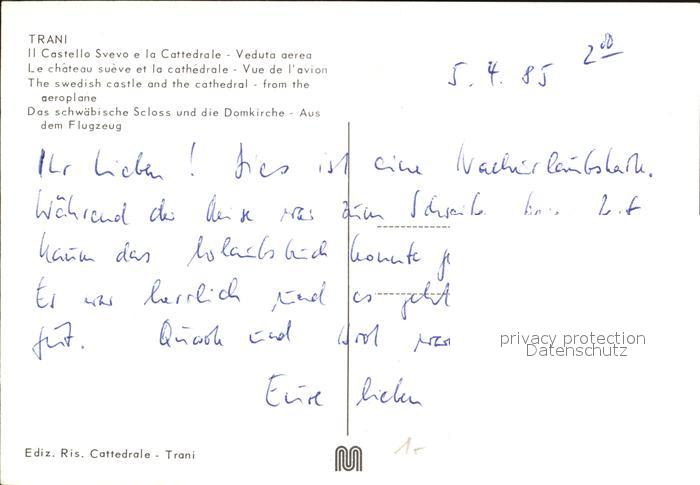 TRANI
Il Castello Svevo e la Cattedrale - Veduta aerea
Le château suève et la cathédrale - Vue de l'avion
The swedish castle and the cathedral - from the
aeroplane
Das schwäbische Scloss und die Domkirche - Aus
dem Flugzeug
5. 4. 85 2⁰⁰
Ihr Lieben! Dies ist eine Nachurlaubskarte.
Während der Reise war zum Schreiben
kaum das Urlaubsbuch konnte
Es war herrlich und es geht
gut. und war
Eure lieben
privacy protection
Datenschutz
Ediz. Ris. Cattedrale - Trani
1.-